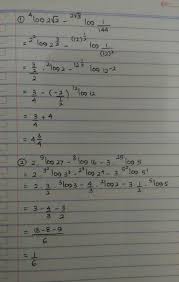 ① ⁴log 2√2 - ²√³ log 1/144
= 2² log 2^(3/2) - (12)^(1/2) log 1/(12)²
= 3/2 / 2 · ²log 2 - 12^(1/2) log 12⁻²
= 3/4 - (-2 / 1/2) ¹²log 12
= 3/4 + 4
= 4 3/4
② 2. ⁹log 27 - ⁸log 16 - 3. ²⁵log 5
= 2. 3² log 3³ - 2³ log 2⁴ - 3. 5² log 5¹
= 2. 3/2. ³log 3 - 4/3. ²log 2 - 3. 1/2. ⁵log 5
= 3 - 4/3 - 3/2
= 18-8-9 / 6
= 1/6